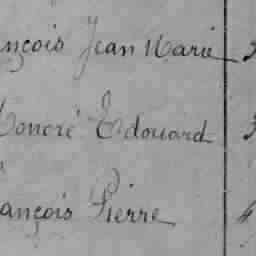 ançois Jean Marie 3
Honoré Edouard 3
ançois Pierre 4